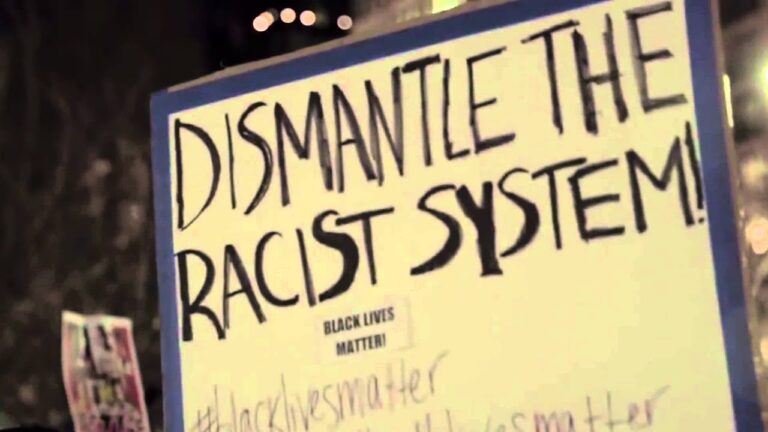 DISMANTLE THE
RACIST SYSTEM!
BLACK LIVES
MATTER!
#blacklivesmatter
livesmatter